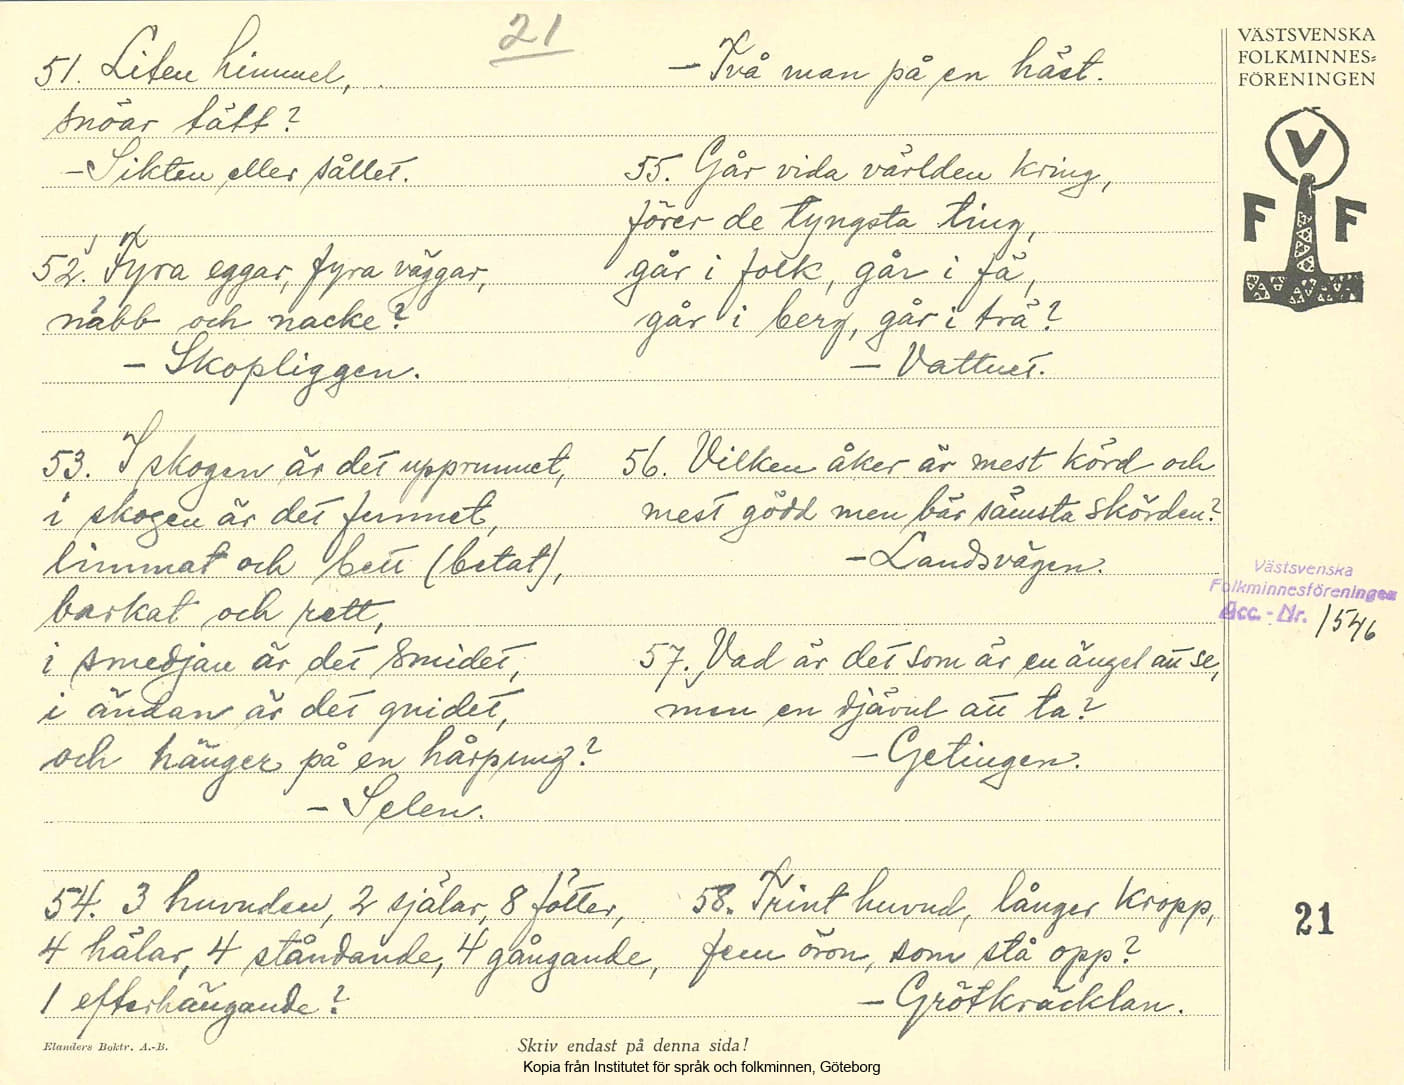 21
51. Liten himmel,
snöar tätt?
- Sikten eller sållet.
52. Fyra eggar, fyra väggar,
näbb och nacke?
- Skopliggen.
53. I skogen är det upprunnet,
i skogen är det funnet,
limmat och bett (betat),
barkat och rett,
i smedjan är det smidet,
i ändan är det gnidet,
och hänger på en hårpung?
- Selen.
54. 3 huvuden, 2 själar, 8 fötter,
4 hälar, 4 ståndande, 4 gångande,
1 efterhängande?
- Två man på en häst.
55. Går vida världen kring,
förer de tyngsta ting,
går i folk, går i fä,
går i berg, går i trä?
- Vattnet.
56. Vilken åker är mest körd och
mest gödd men bär sämsta skörden?
- Landsvägen.
57. Vad är det som är en ängel att se,
men en djävul att ta?
- Getingen.
58. Trint huvud, långer kropp,
fem öron, som stå opp?
- Grötkräcklan.
VÄSTSVENSKA
FOLKMINNES=
FÖRENINGEN
V
F F
Västsvenska
Folkminnesföreningen
Acc.-Nr. 1546
21
Elanders Boktr. A.-B.
Skriv endast på denna sida!
Kopia från Institutet för språk och folkminnen, Göteborg